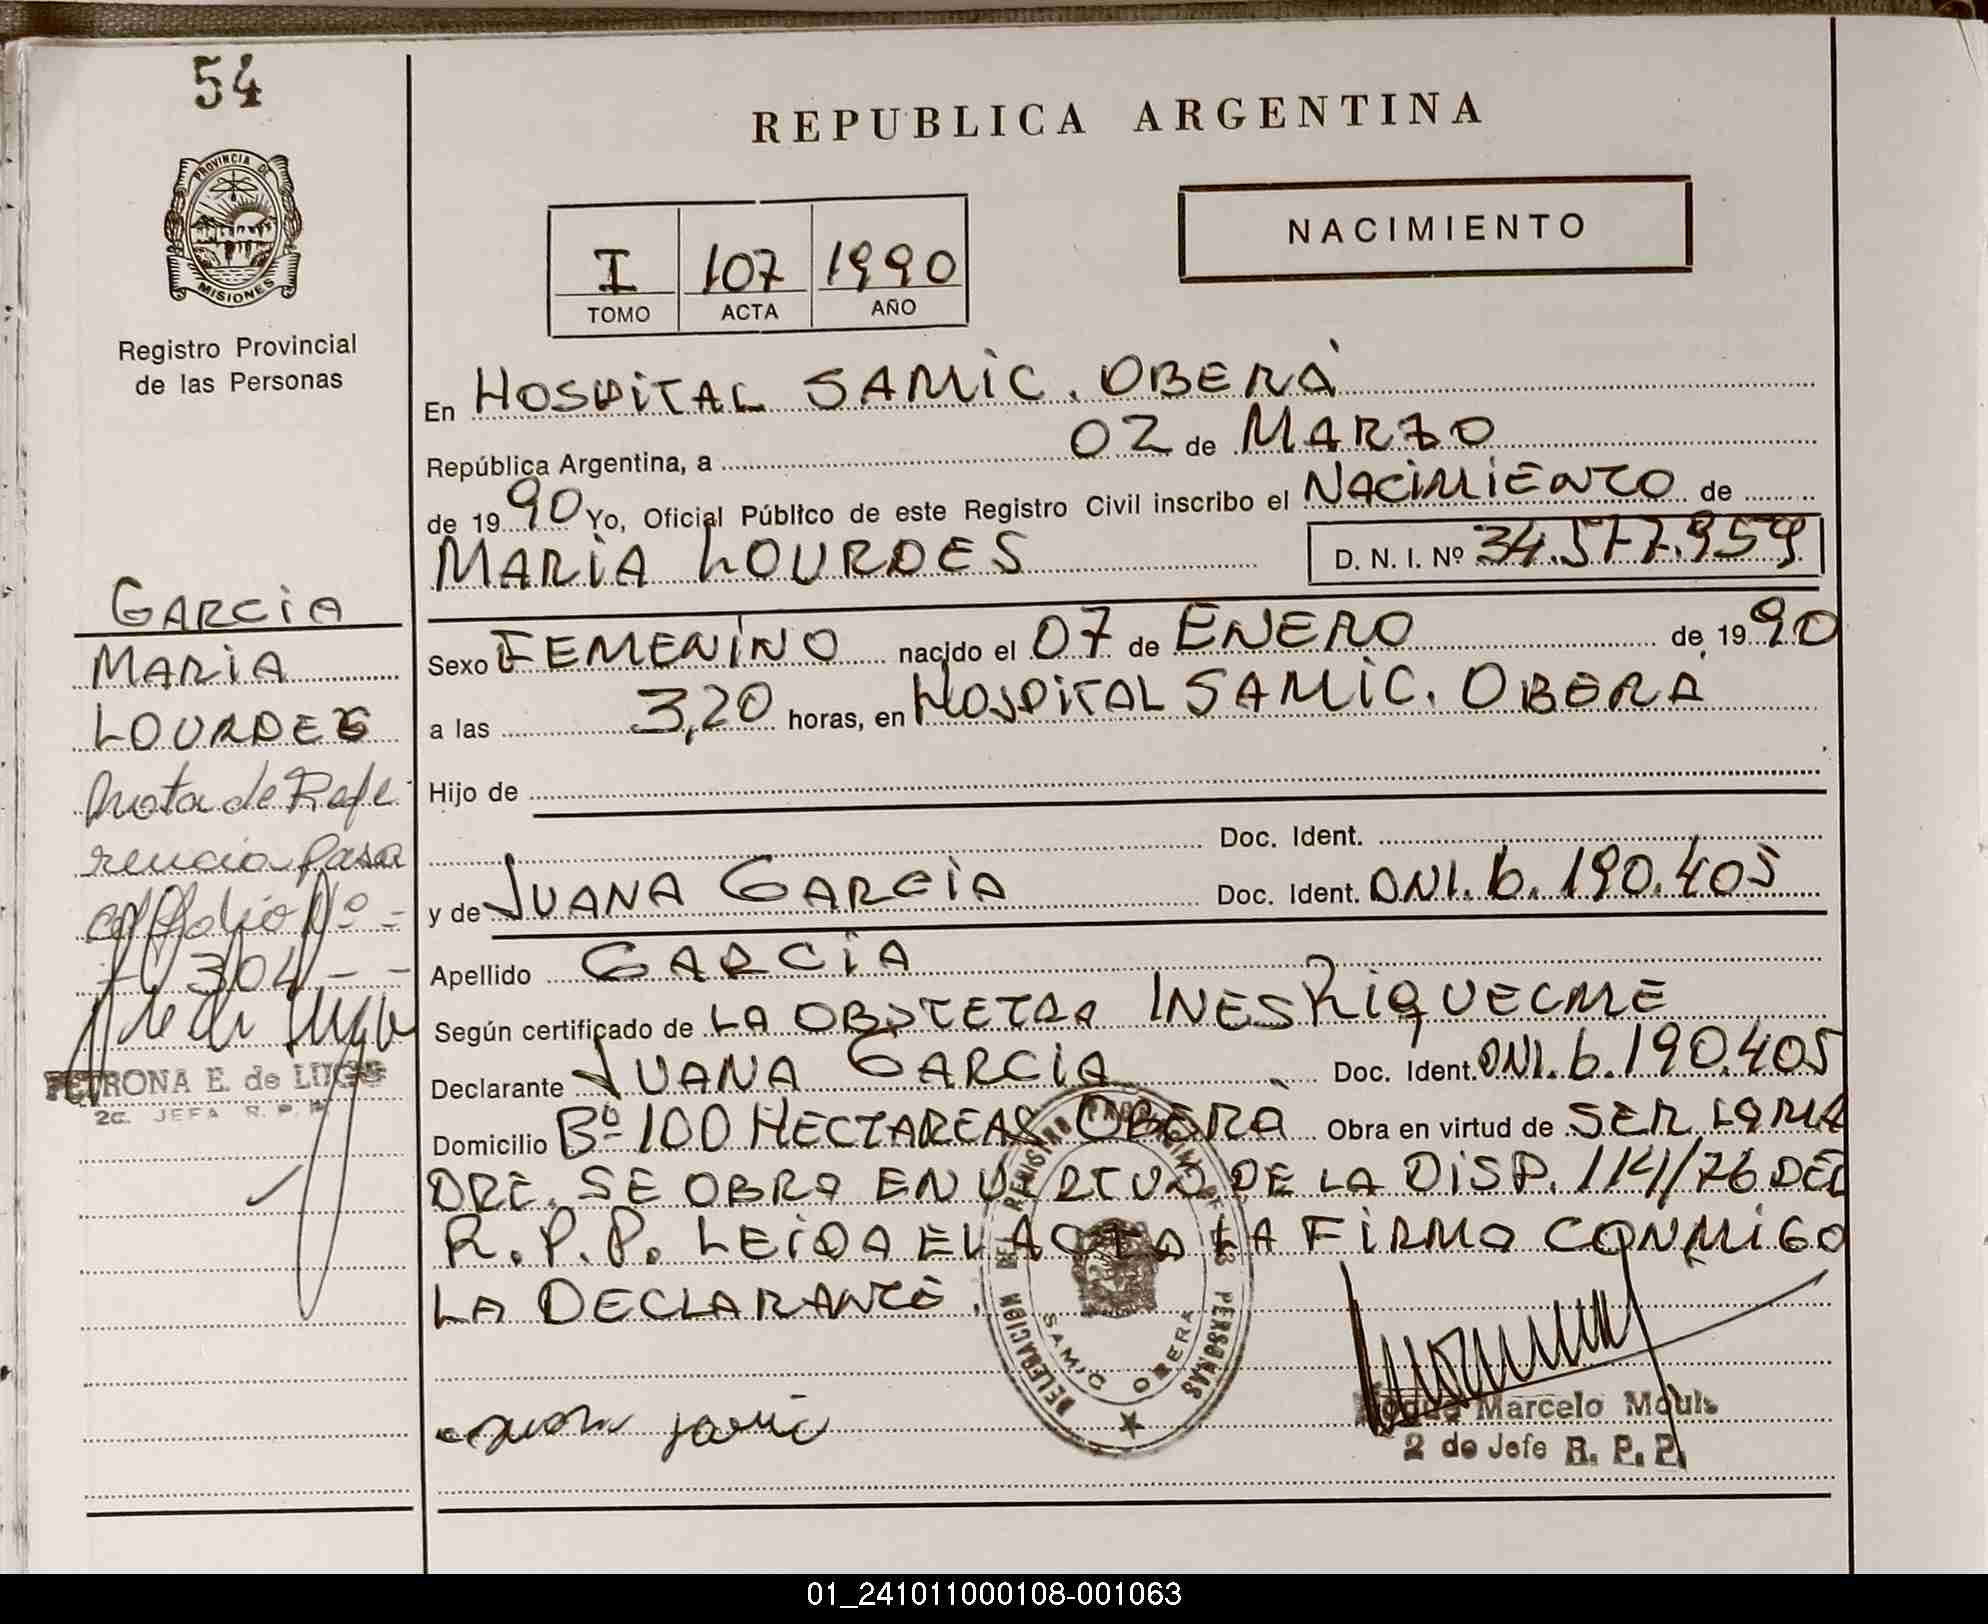 54
REPUBLICA ARGENTINA
PROVINCIA DE
MISIONES
NACIMIENTO
I 107 1990
TOMO ACTA AÑO
Registro Provincial
de las Personas
En HOSPITAL SAMIC. OBERÁ
República Argentina, a 02 de MARZO
de 1990 Yo, Oficial Público de este Registro Civil inscribo el NACIMIENTO de
MARIA LOURDES D. N. I. Nº 34.577.959
GARCIA
MARIA
LOURDES
Nota de Refe
rencia pasa
al folio Nº =
304 - -
PETRONA E. de LUGO
2a. JEFA R. P. P.
Sexo FEMENINO nacido el 07 de ENERO de 1990
a las 3,20 horas, en HOSPITAL SAMIC. OBERÁ
Hijo de
Doc. Ident.
y de JUANA GARCIA Doc. Ident. DNI. 6.190.405
Apellido GARCIA
Según certificado de LA OBSTETRA INES RIQUELME
Declarante JUANA GARCIA Doc. Ident. DNI. 6.190.405
Domicilio Bº 100 HECTAREAS OBERÁ Obra en virtud de SER LA MA
DRE. SE OBRA EN VIRTUD DE LA DISP. 114/76 DEL
R. P. P. LEIDA EL ACTA LA FIRMA CONMIGO
LA DECLARANTE.
DELEGACION DE REGISTRO PROVINCIAL DE LAS PERSONAS
SAMIC OBERA
Marcelo
2 do Jefe R. P. P.
01_241011000108-001063